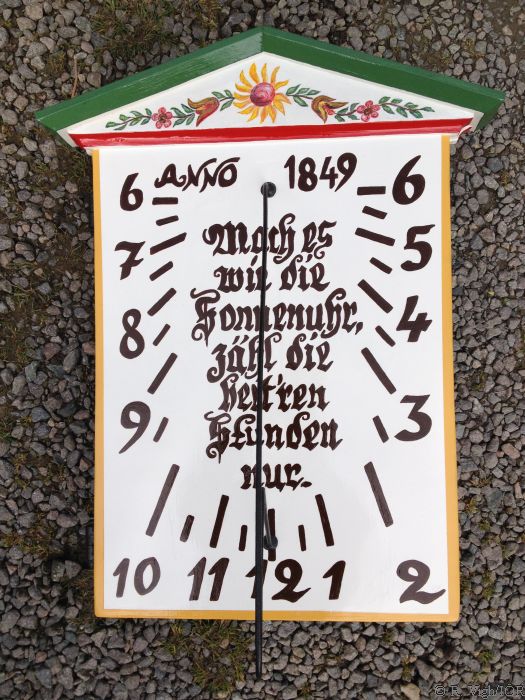 ANNO 1849
6 6
Mach es
7 5
wie die
Sonnenuhr,
8 4
zähl die
heit'ren
9 3
Stunden
nur.
10 11 12 1 2
© R. Vigh/IOR